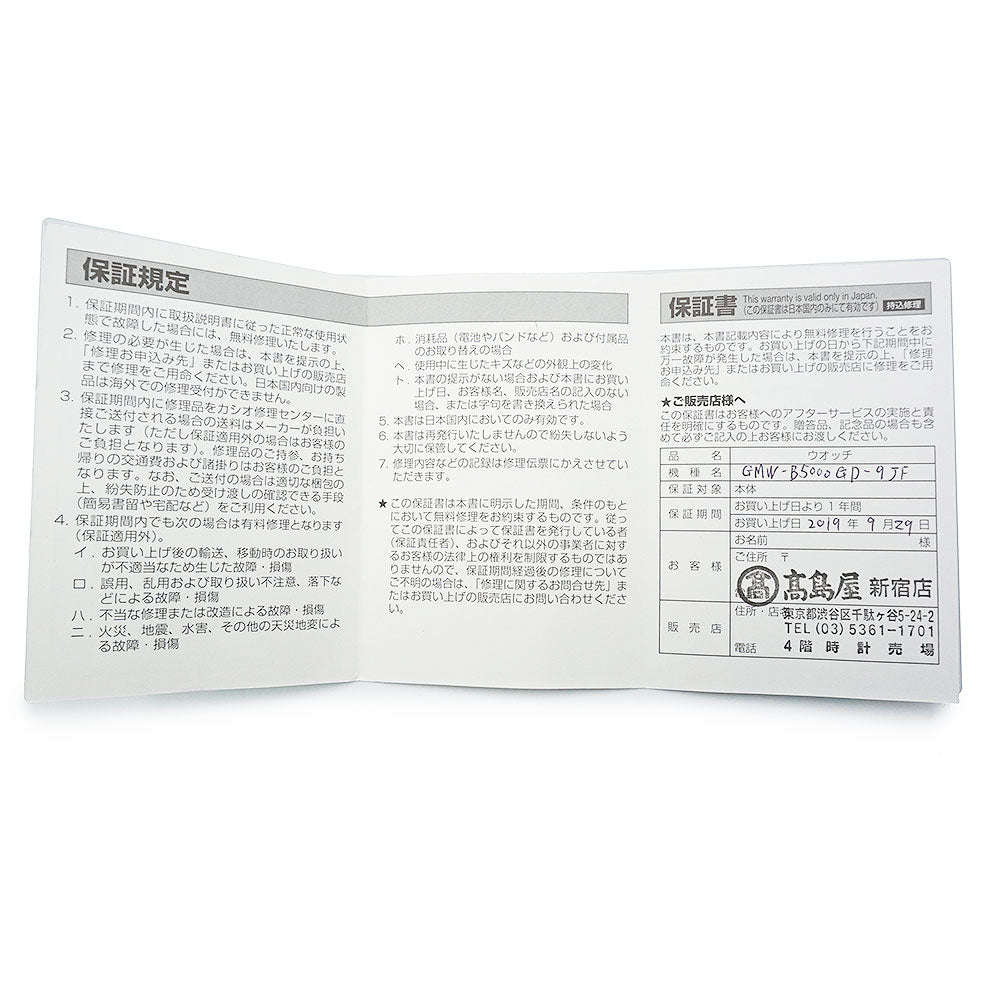 保証規定
1. 保証期間内に取扱説明書に従った正常な使用状
態で故障した場合には、無料修理いたします。
2. 修理の必要が生じた場合は、本書を提示の上、
「修理お申込み先」またはお買い上げの販売店
まで修理をご用命ください。日本国内向けの製
品は海外での修理受付ができません。
3. 保証期間内に修理品をカシオ修理センターに直
接ご送付される場合の送料はメーカーが負担い
たします（ただし保証適用外の場合はお客様の
ご負担となります）。修理品のご持参、お持ち
帰りの交通費および諸掛りはお客様のご負担と
なります。なお、ご送付の場合は適切な梱包の
上、紛失防止のため受け渡しの確認できる手段
（簡易書留や宅配など）をご利用ください。
4. 保証期間内でも次の場合は有料修理となります
（保証適用外）。
イ．お買い上げ後の輸送、移動時のお取り扱い
が不適当なため生じた故障・損傷
ロ．誤用、乱用および取り扱い不注意、落下な
どによる故障・損傷
ハ．不当な修理または改造による故障・損傷
ニ．火災、地震、水害、その他の天災地変によ
る故障・損傷
ホ．消耗品（電池やバンドなど）および付属品
のお取り替えの場合
ヘ．使用中に生じたキズなどの外観上の変化
ト．本書の提示がない場合および本書にお買い
上げ日、お客様名、販売店名の記入のない
場合、または字句を書き換えられた場合
5. 本書は日本国内においてのみ有効です。
6. 本書は再発行いたしませんので紛失しないよう
大切に保管してください。
7. 修理内容などの記録は修理伝票にかえさせてい
ただきます。
★この保証書は本書に明示した期間、条件のもと
において無料修理をお約束するものです。従っ
てこの保証書によって保証書を発行している者
（保証責任者）、およびそれ以外の事業者に対す
るお客様の法律上の権利を制限するものではあ
りませんので、保証期間経過後の修理について
ご不明の場合は、「修理に関するお問合せ先」ま
たはお買い上げの販売店にお問い合わせくださ
い。
保証書 This warranty is valid only in Japan.
（この保証書は日本国内のみにて有効です） 持込修理
本書は、本書記載内容により無料修理を行うことをお
約束するものです。お買い上げの日から下記期間中に
万一故障が発生した場合は、本書を提示の上、「修理
お申込み先」またはお買い上げの販売店に修理をご用
命ください。
★ご販売店様へ
この保証書はお客様へのアフターサービスの実施と責
任を明確にするものです。贈答品、記念品の場合も含
めて必ずご記入の上お客様にお渡しください。
品名 ウオッチ
機種名 GMW-B5000GD-9JF
保証対象 本体
保証期間 お買い上げ日より1年間
お買い上げ日 2019年9月29日
お客様 お名前 様
ご住所 〒
髙島屋 新宿店
販売店 住所・店名 東京都渋谷区千駄ヶ谷5-24-2
TEL (03) 5361-1701
電話 4階時計売場